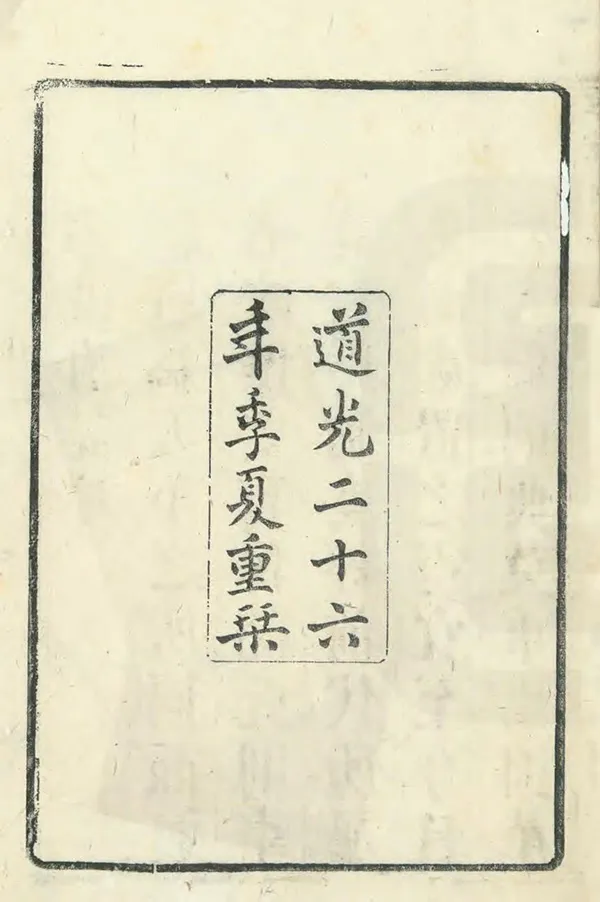 道光二十六
年季夏重栞